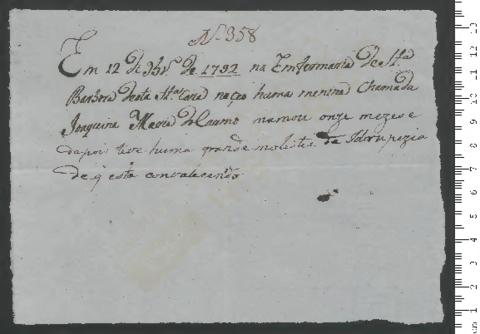 Nº 358
Em 12 de 9brº de 1792 na Emfermaria de Stª
Barbora desta Stª Caza naçeo huma menina Chamada
Joaquina Maria do Carmo mamou onze mezes e
depois teve huma grande molestia de Idrupezia
de q está convalecendo